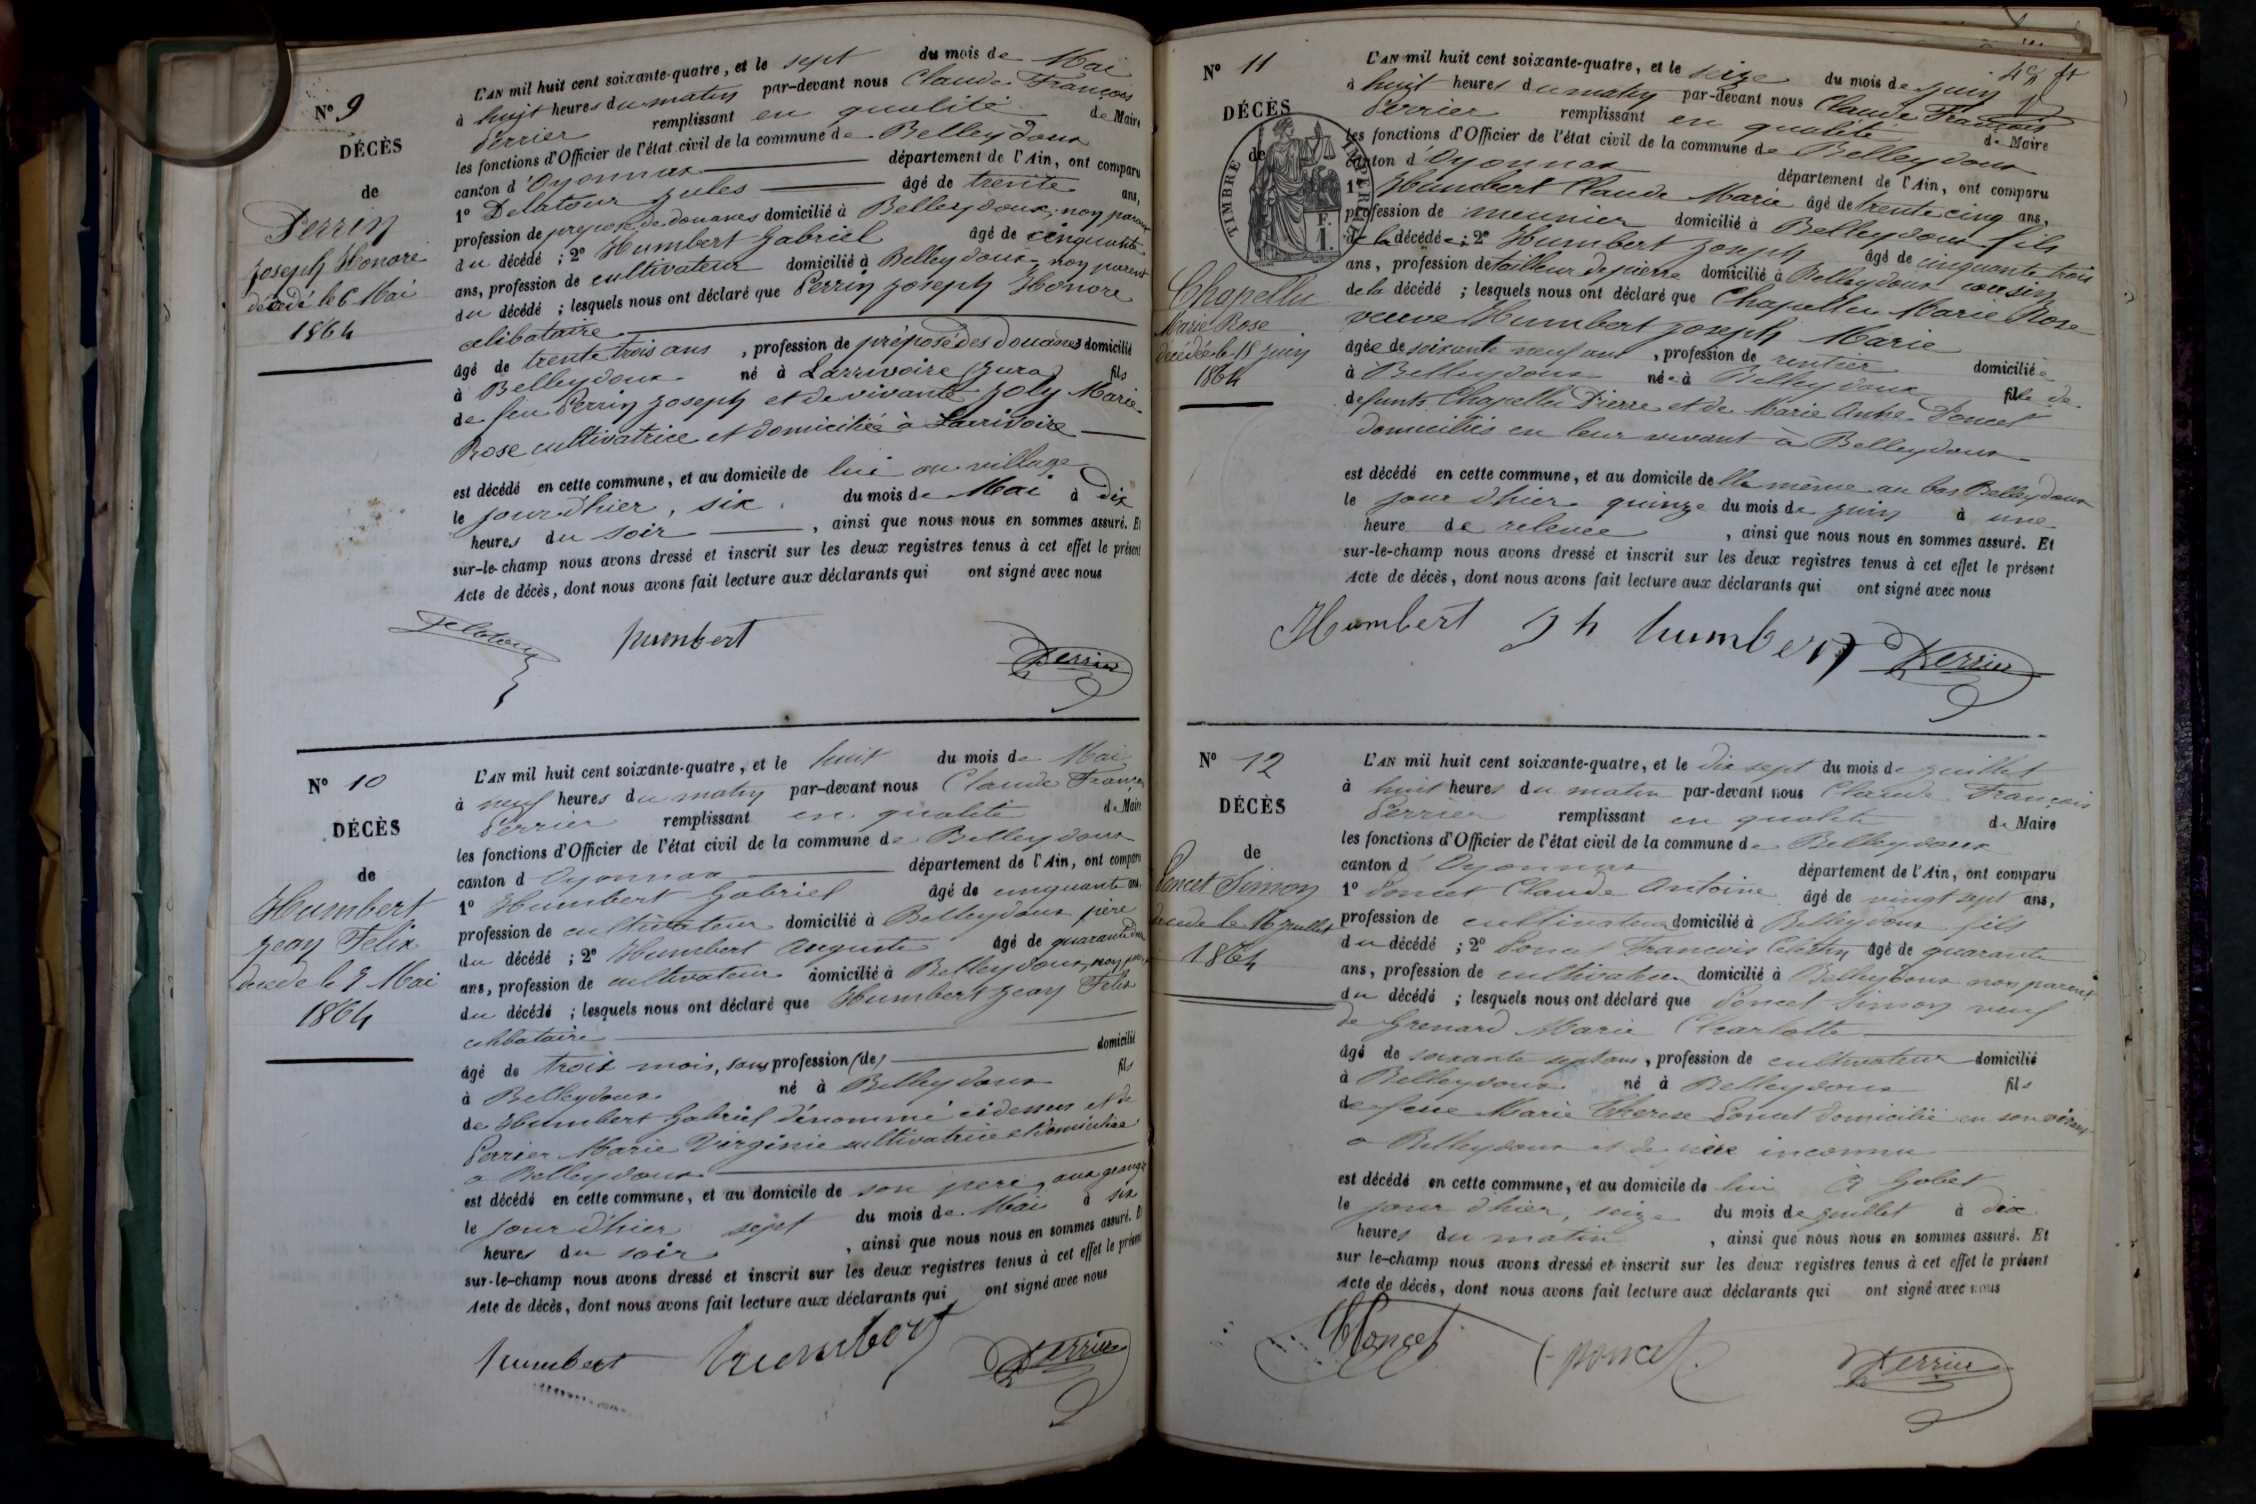 Nº 9
DÉCÈS
de
Perrin
Joseph Honoré
décédé le 6 Mai
1864
L'AN mil huit cent soixante-quatre, et le sept du mois de Mai
à huit heures du matin par-devant nous Claude François
Perrier remplissant en qualité de Maire
les fonctions d'Officier de l'état civil de la commune de Belleydoux
canton d'Oyonnax département de l'Ain, ont comparu
1º Delatour Jules âgé de trente ans,
profession de préposé de douanes domicilié à Belleydoux, non parent
du décédé ; 2º Humbert Gabriel âgé de cinquante
ans, profession de cultivateur domicilié à Belleydoux, non parent
du décédé ; lesquels nous ont déclaré que Perrin Joseph Honoré
célibataire
âgé de trente trois ans, profession de préposé des douanes domicilié
à Belleydoux né à Larrivoire (Jura) fils
de feu Perrin Joseph et de vivante Joly Marie-
Rose cultivatrice et domiciliée à Larrivoire
est décédé en cette commune, et au domicile de lui au village
le jour d'hier, six du mois de Mai à dix
heures du soir, ainsi que nous nous en sommes assuré. Et
sur-le-champ nous avons dressé et inscrit sur les deux registres tenus à cet effet le présent
Acte de décès, dont nous avons fait lecture aux déclarants qui ont signé avec nous
Delatour humbert Perrier
Nº 10
DÉCÈS
de
Humbert
Jean Felix
décédé le 7 Mai
1864
L'AN mil huit cent soixante-quatre, et le huit du mois de Mai
à neuf heures du matin par-devant nous Claude François
Perrier remplissant en qualité de Maire
les fonctions d'Officier de l'état civil de la commune de Belleydoux
canton d Oyonnax département de l'Ain, ont comparu
1º Humbert Gabriel âgé de cinquante ans,
profession de cultivateur domicilié à Belleydoux père
du décédé ; 2º Humbert Auguste âgé de quarante deux
ans, profession de cultivateur domicilié à Belleydoux, non parent
du décédé ; lesquels nous ont déclaré que Humbert Jean Felix
célibataire
âgé de trois mois, sans profession (de) domicilié
à Belleydoux né à Belleydoux fils
de Humbert Gabriel dénommé ci dessus et de
Perrier Marie Virginie cultivatrice et domiciliée
à Belleydoux
est décédé en cette commune, et au domicile de son père, aux granges
le jour d'hier sept du mois de Mai à six
heures du soir, ainsi que nous nous en sommes assuré. Et
sur-le-champ nous avons dressé et inscrit sur les deux registres tenus à cet effet le présent
Acte de décès, dont nous avons fait lecture aux déclarants qui ont signé avec nous
humbert humbert Perrier
4e ft
Nº 11
DÉCÈS
de
TIMBRE IMPERIAL
F.
1.
Chapellu
Marie Rose
décédée le 15 Juin
1864
L'AN mil huit cent soixante-quatre, et le seize du mois de Juin
à huit heures du matin par-devant nous Claude François
Perrier remplissant en qualité de Maire
les fonctions d'Officier de l'état civil de la commune de Belleydoux
canton d'Oyonnax département de l'Ain, ont comparu
1º Humbert Claude Marie âgé de trente cinq ans,
profession de meunier domicilié à Belleydoux fils
de la décédée ; 2º Humbert Joseph âgé de cinquante trois
ans, profession de tailleur de pierre domicilié à Belleydoux cousin
de la décédé ; lesquels nous ont déclaré que Chapellu Marie Rose
veuve Humbert Joseph Marie
âgée de soixante neuf ans, profession de rentier domiciliée
à Belleydoux née à Belleydoux fille de
defunts Chapellu Pierre et de Marie Anne Poncet
domiciliés en leur vivant à Belleydoux
est décédé en cette commune, et au domicile de elle même au bas Belleydoux
le jour d'hier quinze du mois de juin à une
heure de relevée, ainsi que nous nous en sommes assuré. Et
sur-le-champ nous avons dressé et inscrit sur les deux registres tenus à cet effet le présent
Acte de décès, dont nous avons fait lecture aux déclarants qui ont signé avec nous
Humbert J h humbert Perrier
Nº 12
DÉCÈS
de
Poncet Simon
décédé le 16 Juillet
1864
L'AN mil huit cent soixante-quatre, et le dix sept du mois de juillet
à huit heures du matin par-devant nous Claude François
Perrier remplissant en qualité de Maire
les fonctions d'Officier de l'état civil de la commune de Belleydoux
canton d'Oyonnax département de l'Ain, ont comparu
1º Poncet Claude Antoine âgé de vingt sept ans,
profession de cultivateur domicilié à Belleydoux fils
du décédé ; 2º Poncet François Célestin âgé de quarante
ans, profession de cultivateur domicilié à Belleydoux non parent
du décédé ; lesquels nous ont déclaré que Poncet Simon veuf
de Grenard Marie Charlotte
âgé de soixante sept ans, profession de cultivateur domicilié
à Belleydoux né à Belleydoux fils
de feue Marie Therese Poncet domicilié en son vivant
à Belleydoux et de père inconnu
est décédé en cette commune, et au domicile de lui à Gobet
le jour d'hier, seize du mois de juillet à dix
heures du matin, ainsi que nous nous en sommes assuré. Et
sur le-champ nous avons dressé et inscrit sur les deux registres tenus à cet effet le présent
Acte de décès, dont nous avons fait lecture aux déclarants qui ont signé avec nous
Poncet poncet Perrier